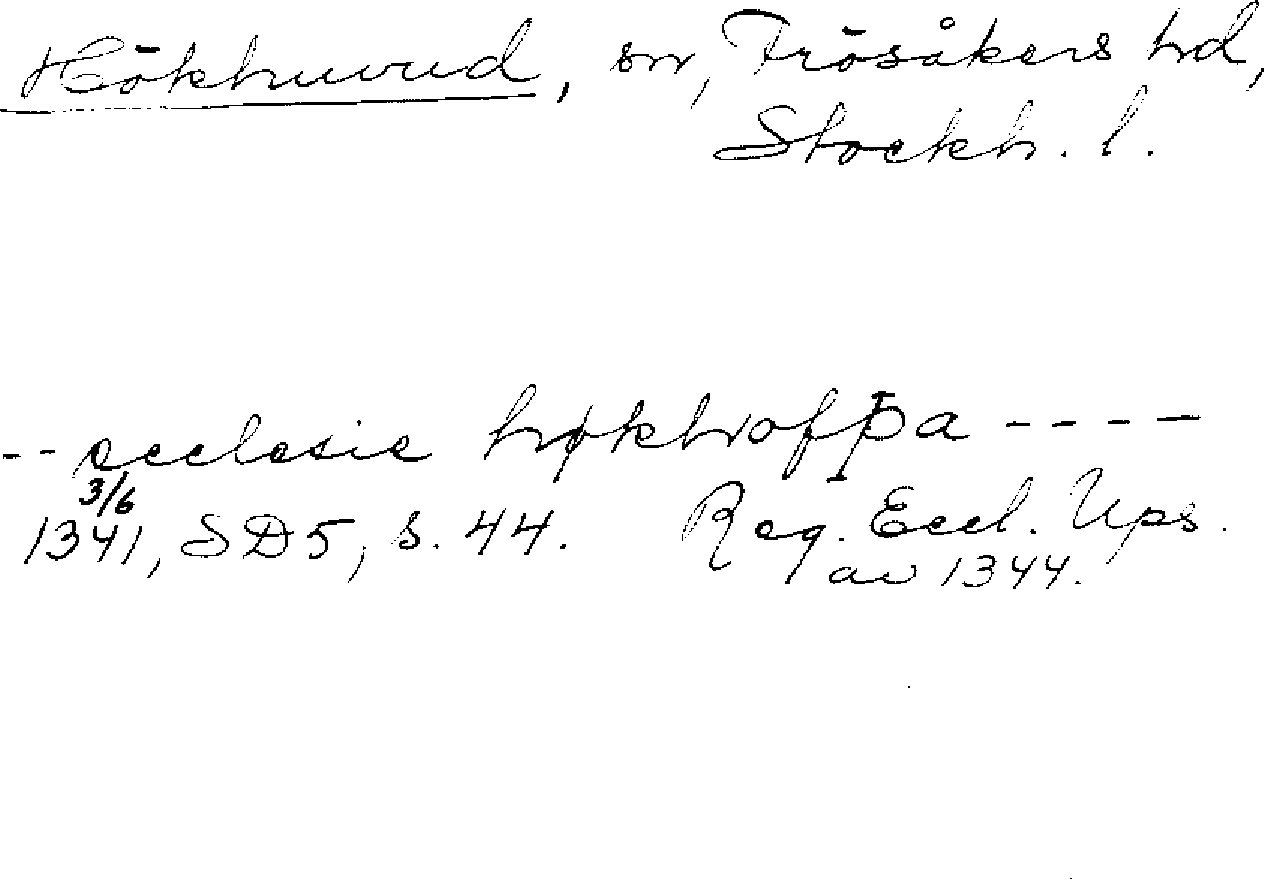 Hökhuvud, sn, Frösåkers hd,
Stockh. l.
-- ecclesie høkhofþa ----
3/6
1341, SD5, s. 44. Reg. Eccl. Ups.
av 1344.